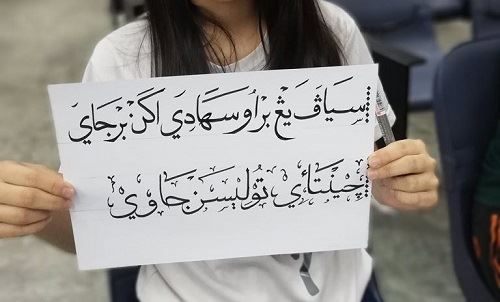 سياڤ يڠ براوسها دي اکن برجاي
چينتاٴي توليسن جاوي